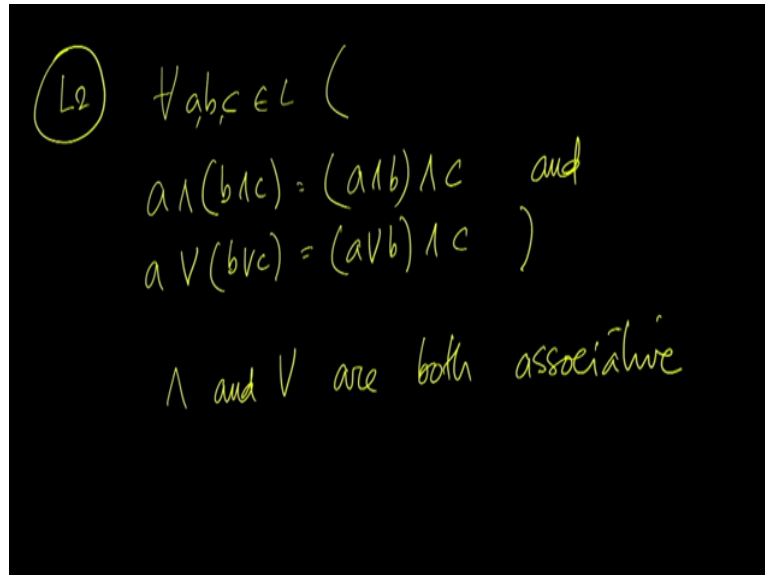 L2 ∀a,b,c ∈ L (
a ∧ (b ∧ c) = (a ∧ b) ∧ c and
a ∨ (b ∨ c) = (a ∨ b) ∧ c )
∧ and ∨ are both associative